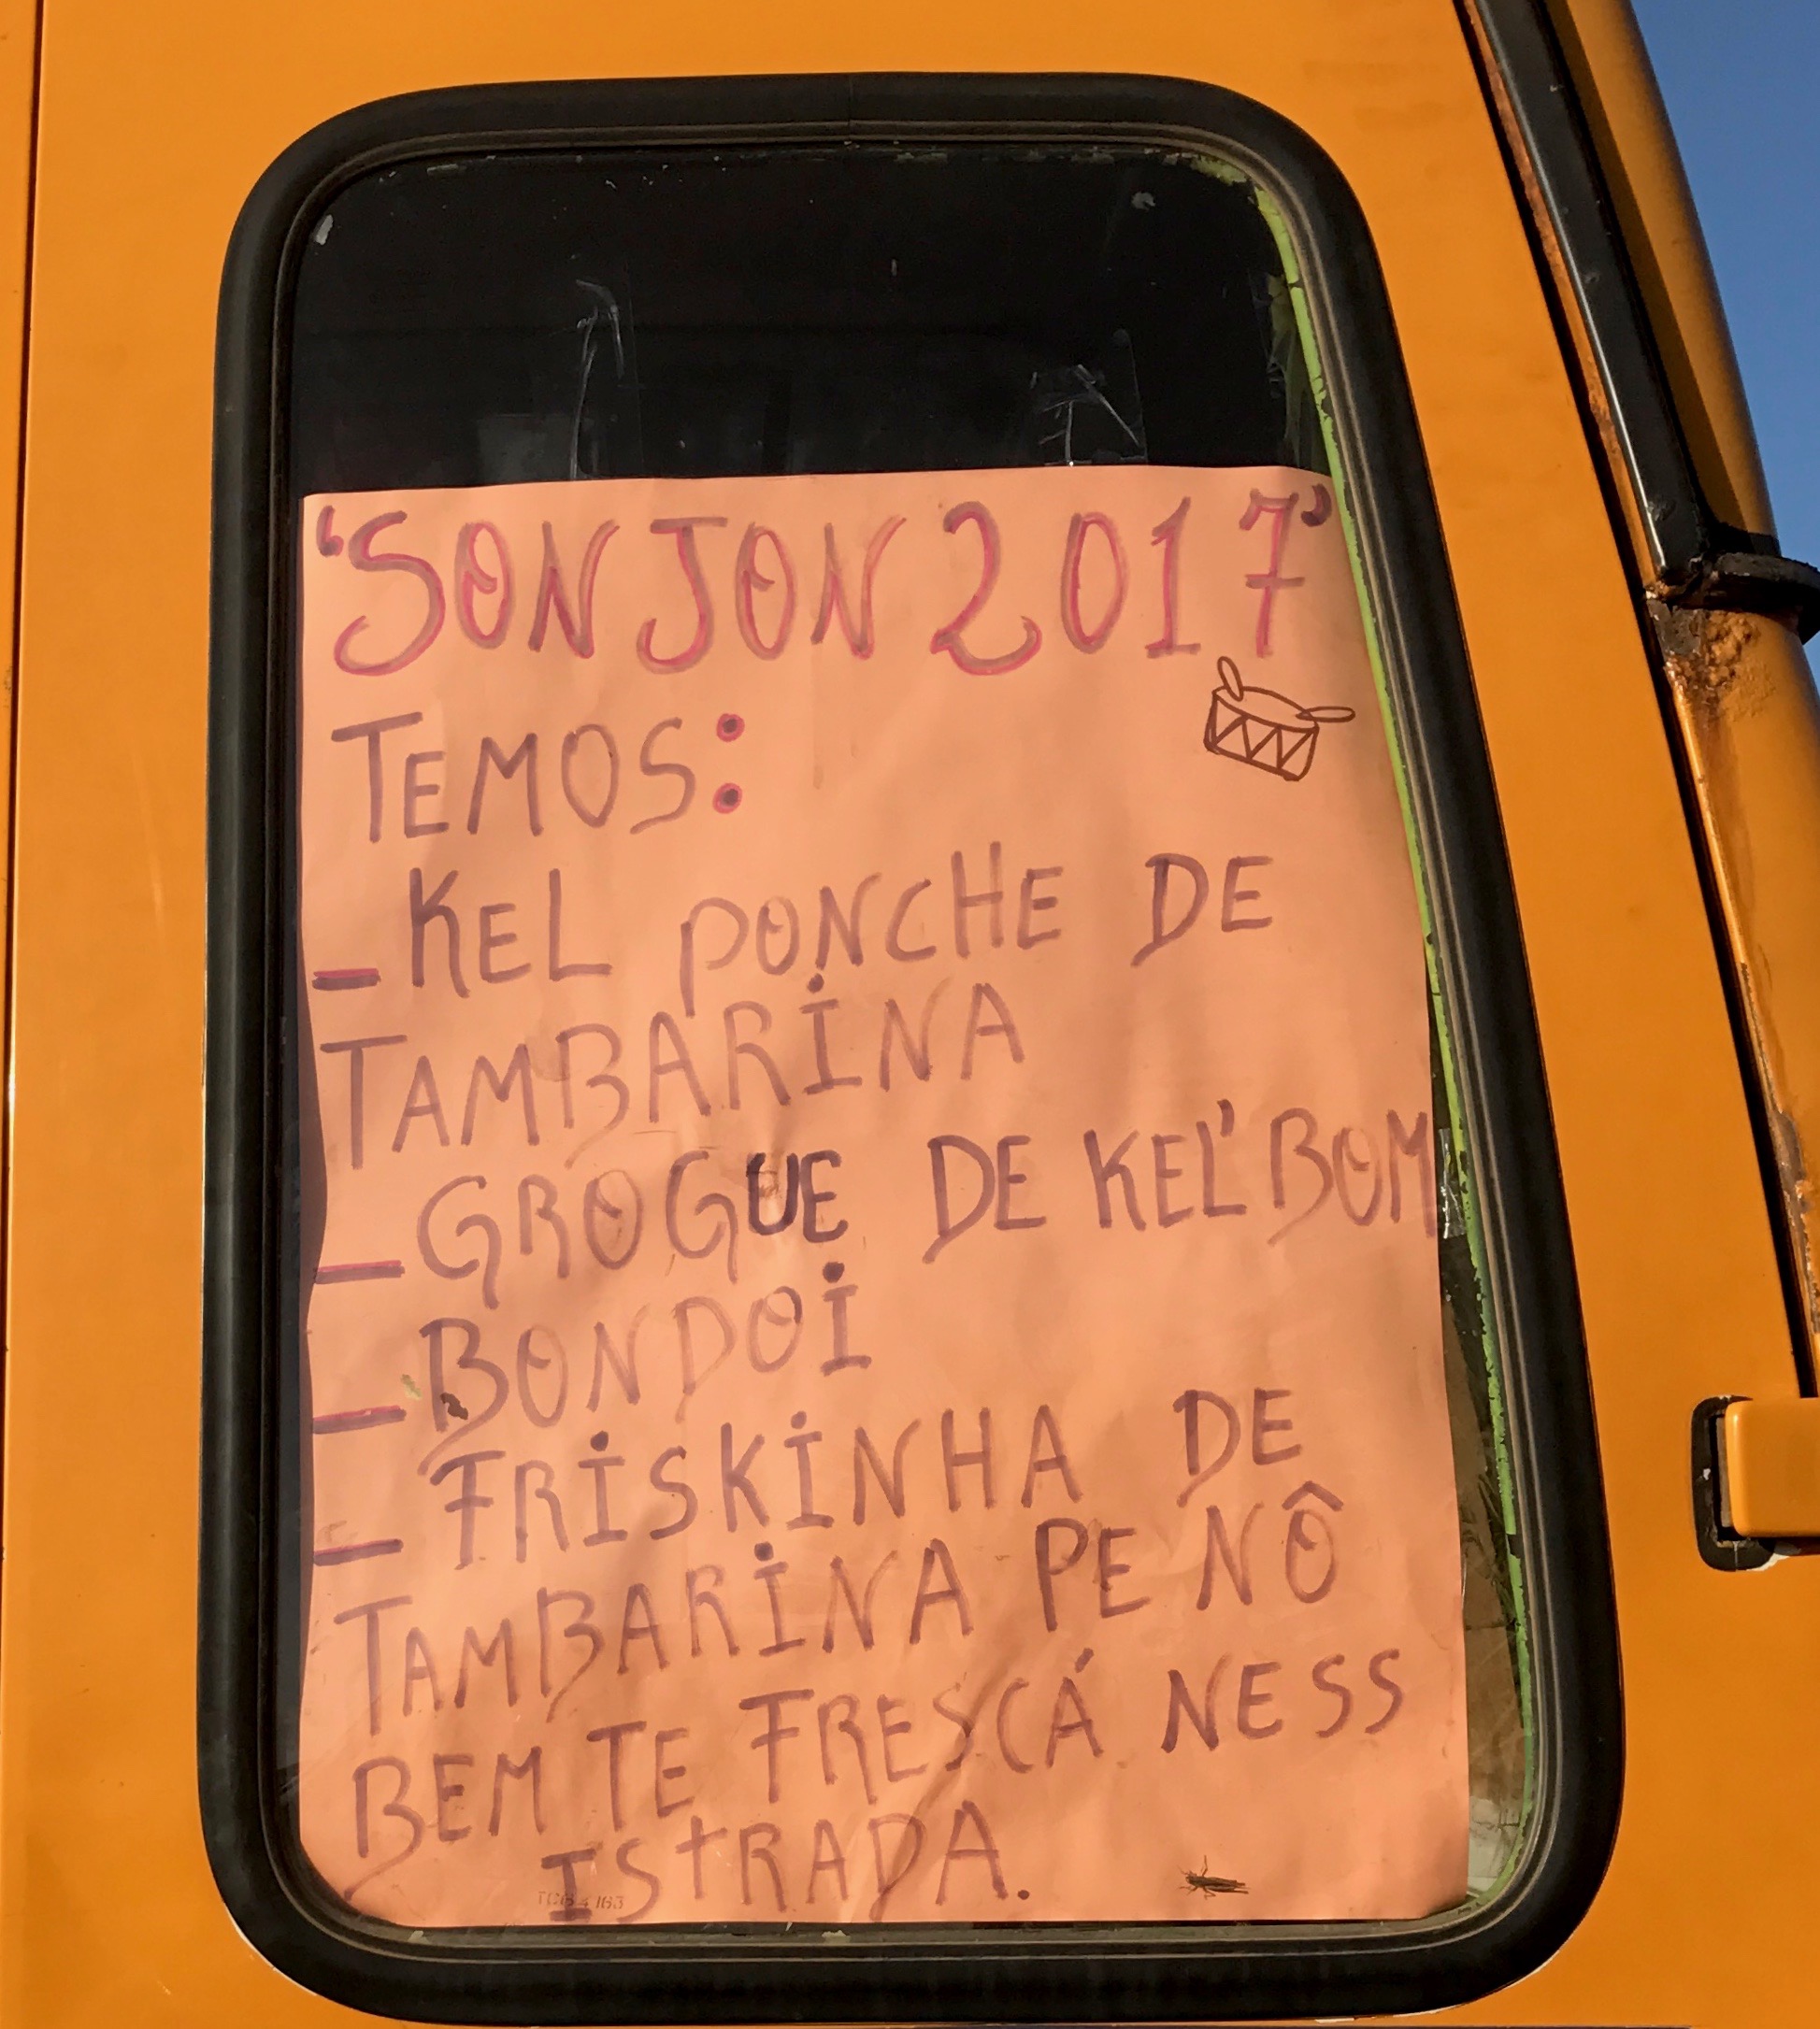 'SON JON 2017'
TEMOS:
- KEL PONCHE DE
TAMBARINA
- GROGUE DE KEL' BOM
- BONDOI
- FRISKINHA DE
TAMBARINA PE NÔ
BEM TE FRESCÁ NESS
ISTRADA.